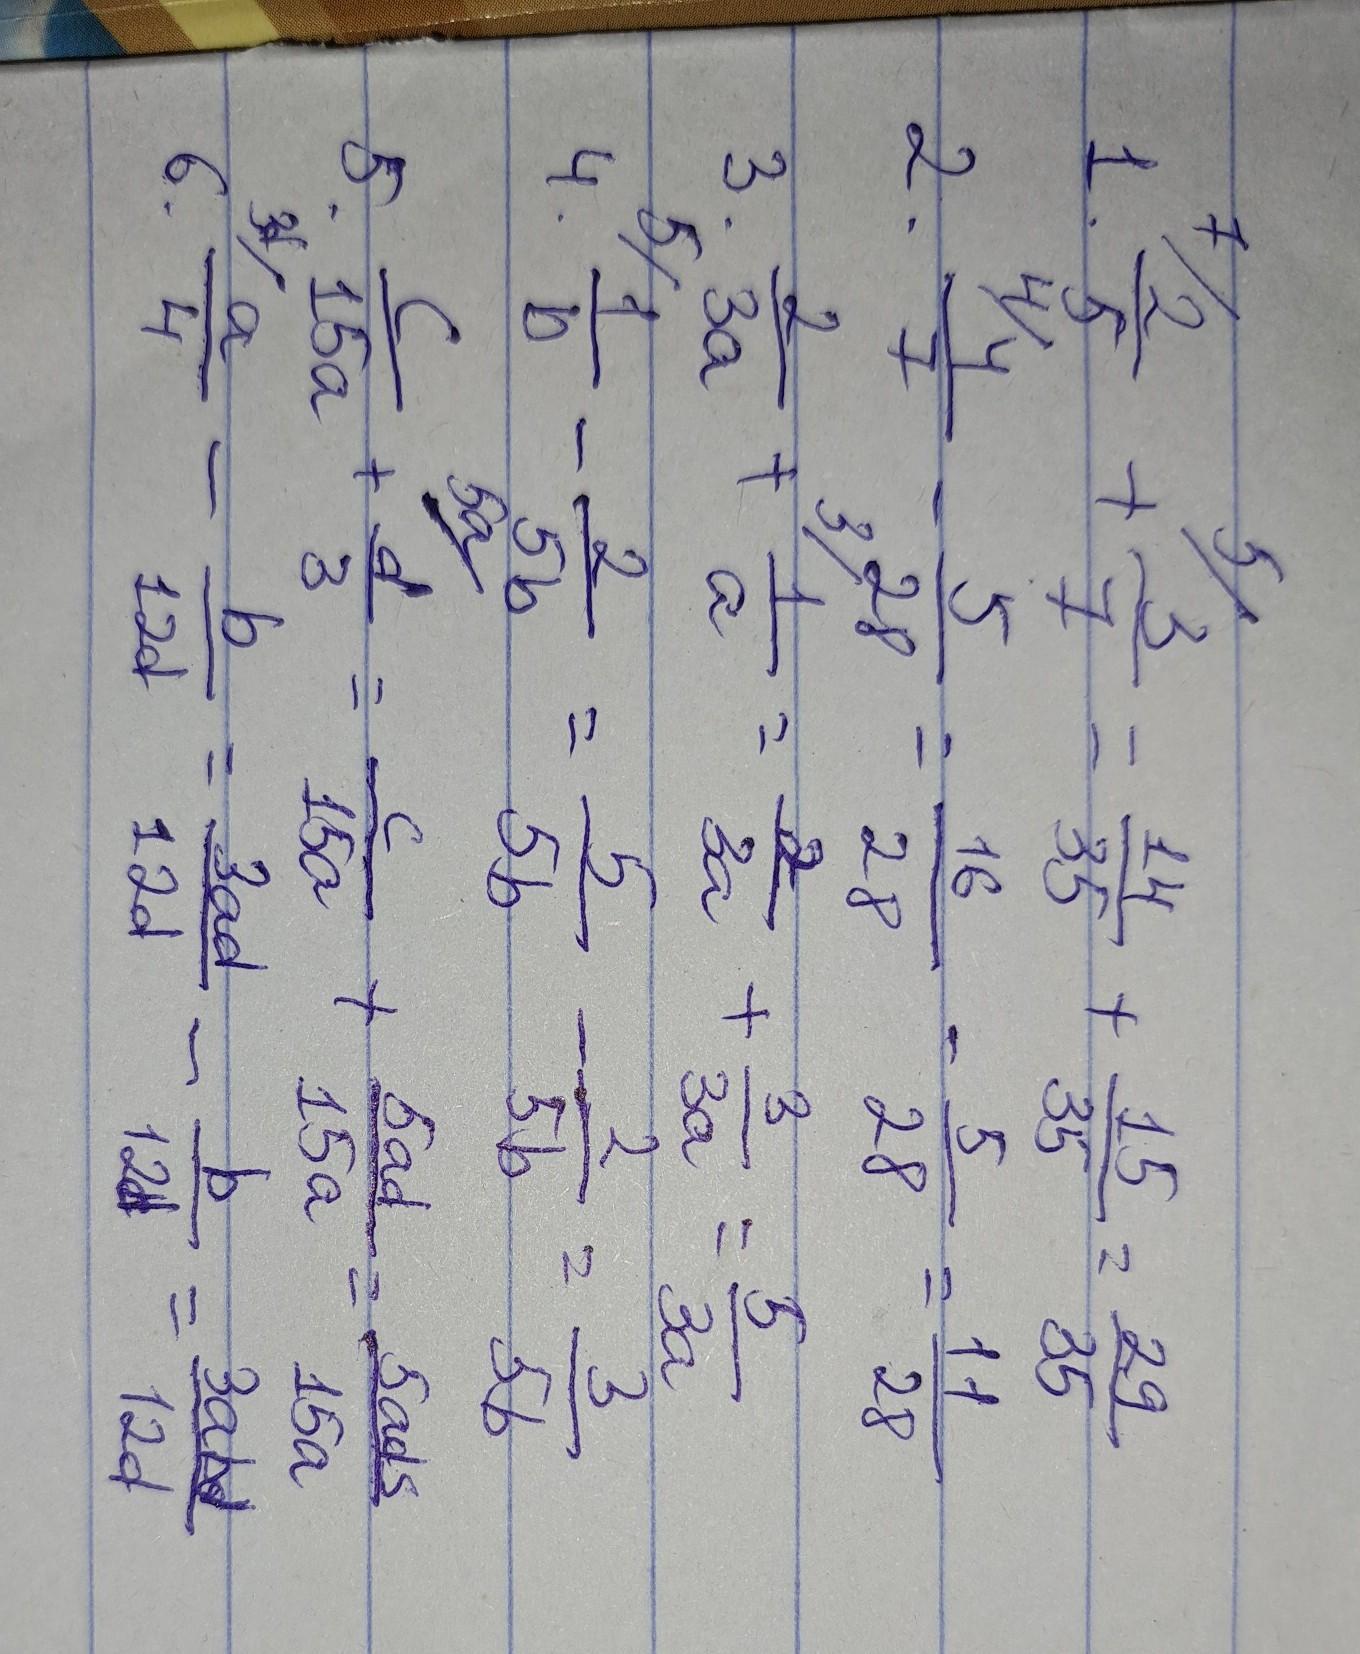 7/ 5/
1. 2/5 + 3/7 = 14/35 + 15/35 = 29/35
4/
2. 4/7 - 5/28 = 16/28 - 5/28 = 11/28
3/
3. 2/3a + 1/a = 2/3a + 3/3a = 5/3a
5/
4. 1/b - 2/5b = 5/5b - 2/5b = 3/5b
5a/
5. c/15a + d/3 = c/15a + 5ad/15a = 5adc/15a
3d/
6. a/4 - b/12d = 3ad/12d - b/12d = 3abd/12d